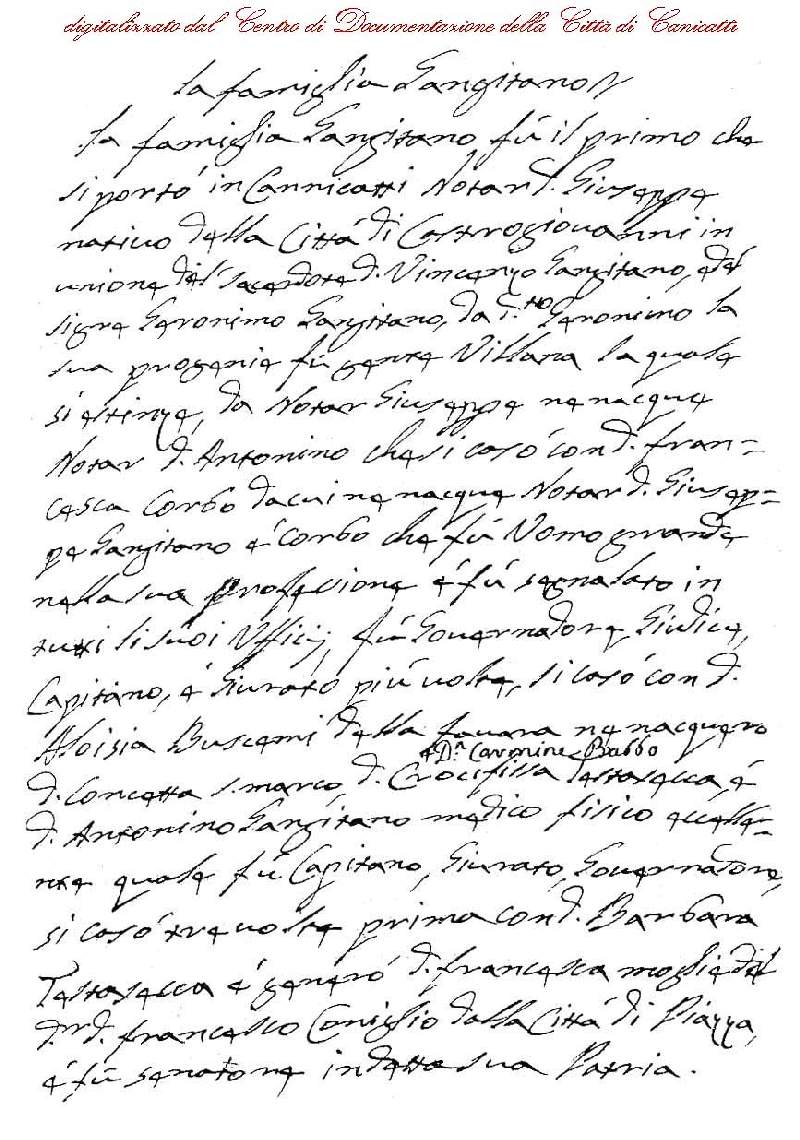 digitalizzato dal Centro di Documentazione della Città di Canicattì
La famiglia Gangitano
La famiglia Gangitano fú il primo che
si portó in Cannicatti Notar d. Giuseppe
nativo della Cittá di Castrogiovanni in
unione del sacerdote d. Vincenzo Gangitano, e del
sig.re Geronimo Gangitano, da d.tto Geronimo la
sua progenie fú gente Villana la quale
si estinze, da Notar Giuseppe ne nacque
Notar d. Antonino che si casó con d. fran=
cesca Corbo da cui ne nacque Notar d. Giusep=
pe Gangitano é Corbo che fú Uomo grande
nella sua Professione é fú segnalato in
tutti li suoi Ufficij, fú Governadore, Giudice,
Capitano, é Giurato piú volte, si casó con d.
Aloisia Buscemi della favara ne nacquero
e D.ª Carmine Bubbo
d. Concetta s. marco, d. Crocifissa Testasecca, é
d. Antonino Gangitano medico fisico eccelle=
nte quale fú Capitano, Giurato, Governadore,
si casó tre volte prima con d. Barbara
Testasecca é generó d. francesca moglie del
d.r d. francesco Coniglio dalla Cittá di Piazza,
é fú senatore in detta sua Patria.